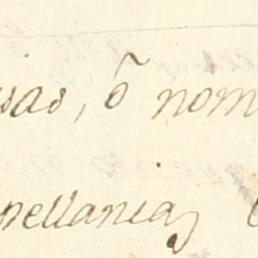 sias, õ nom
pellanias